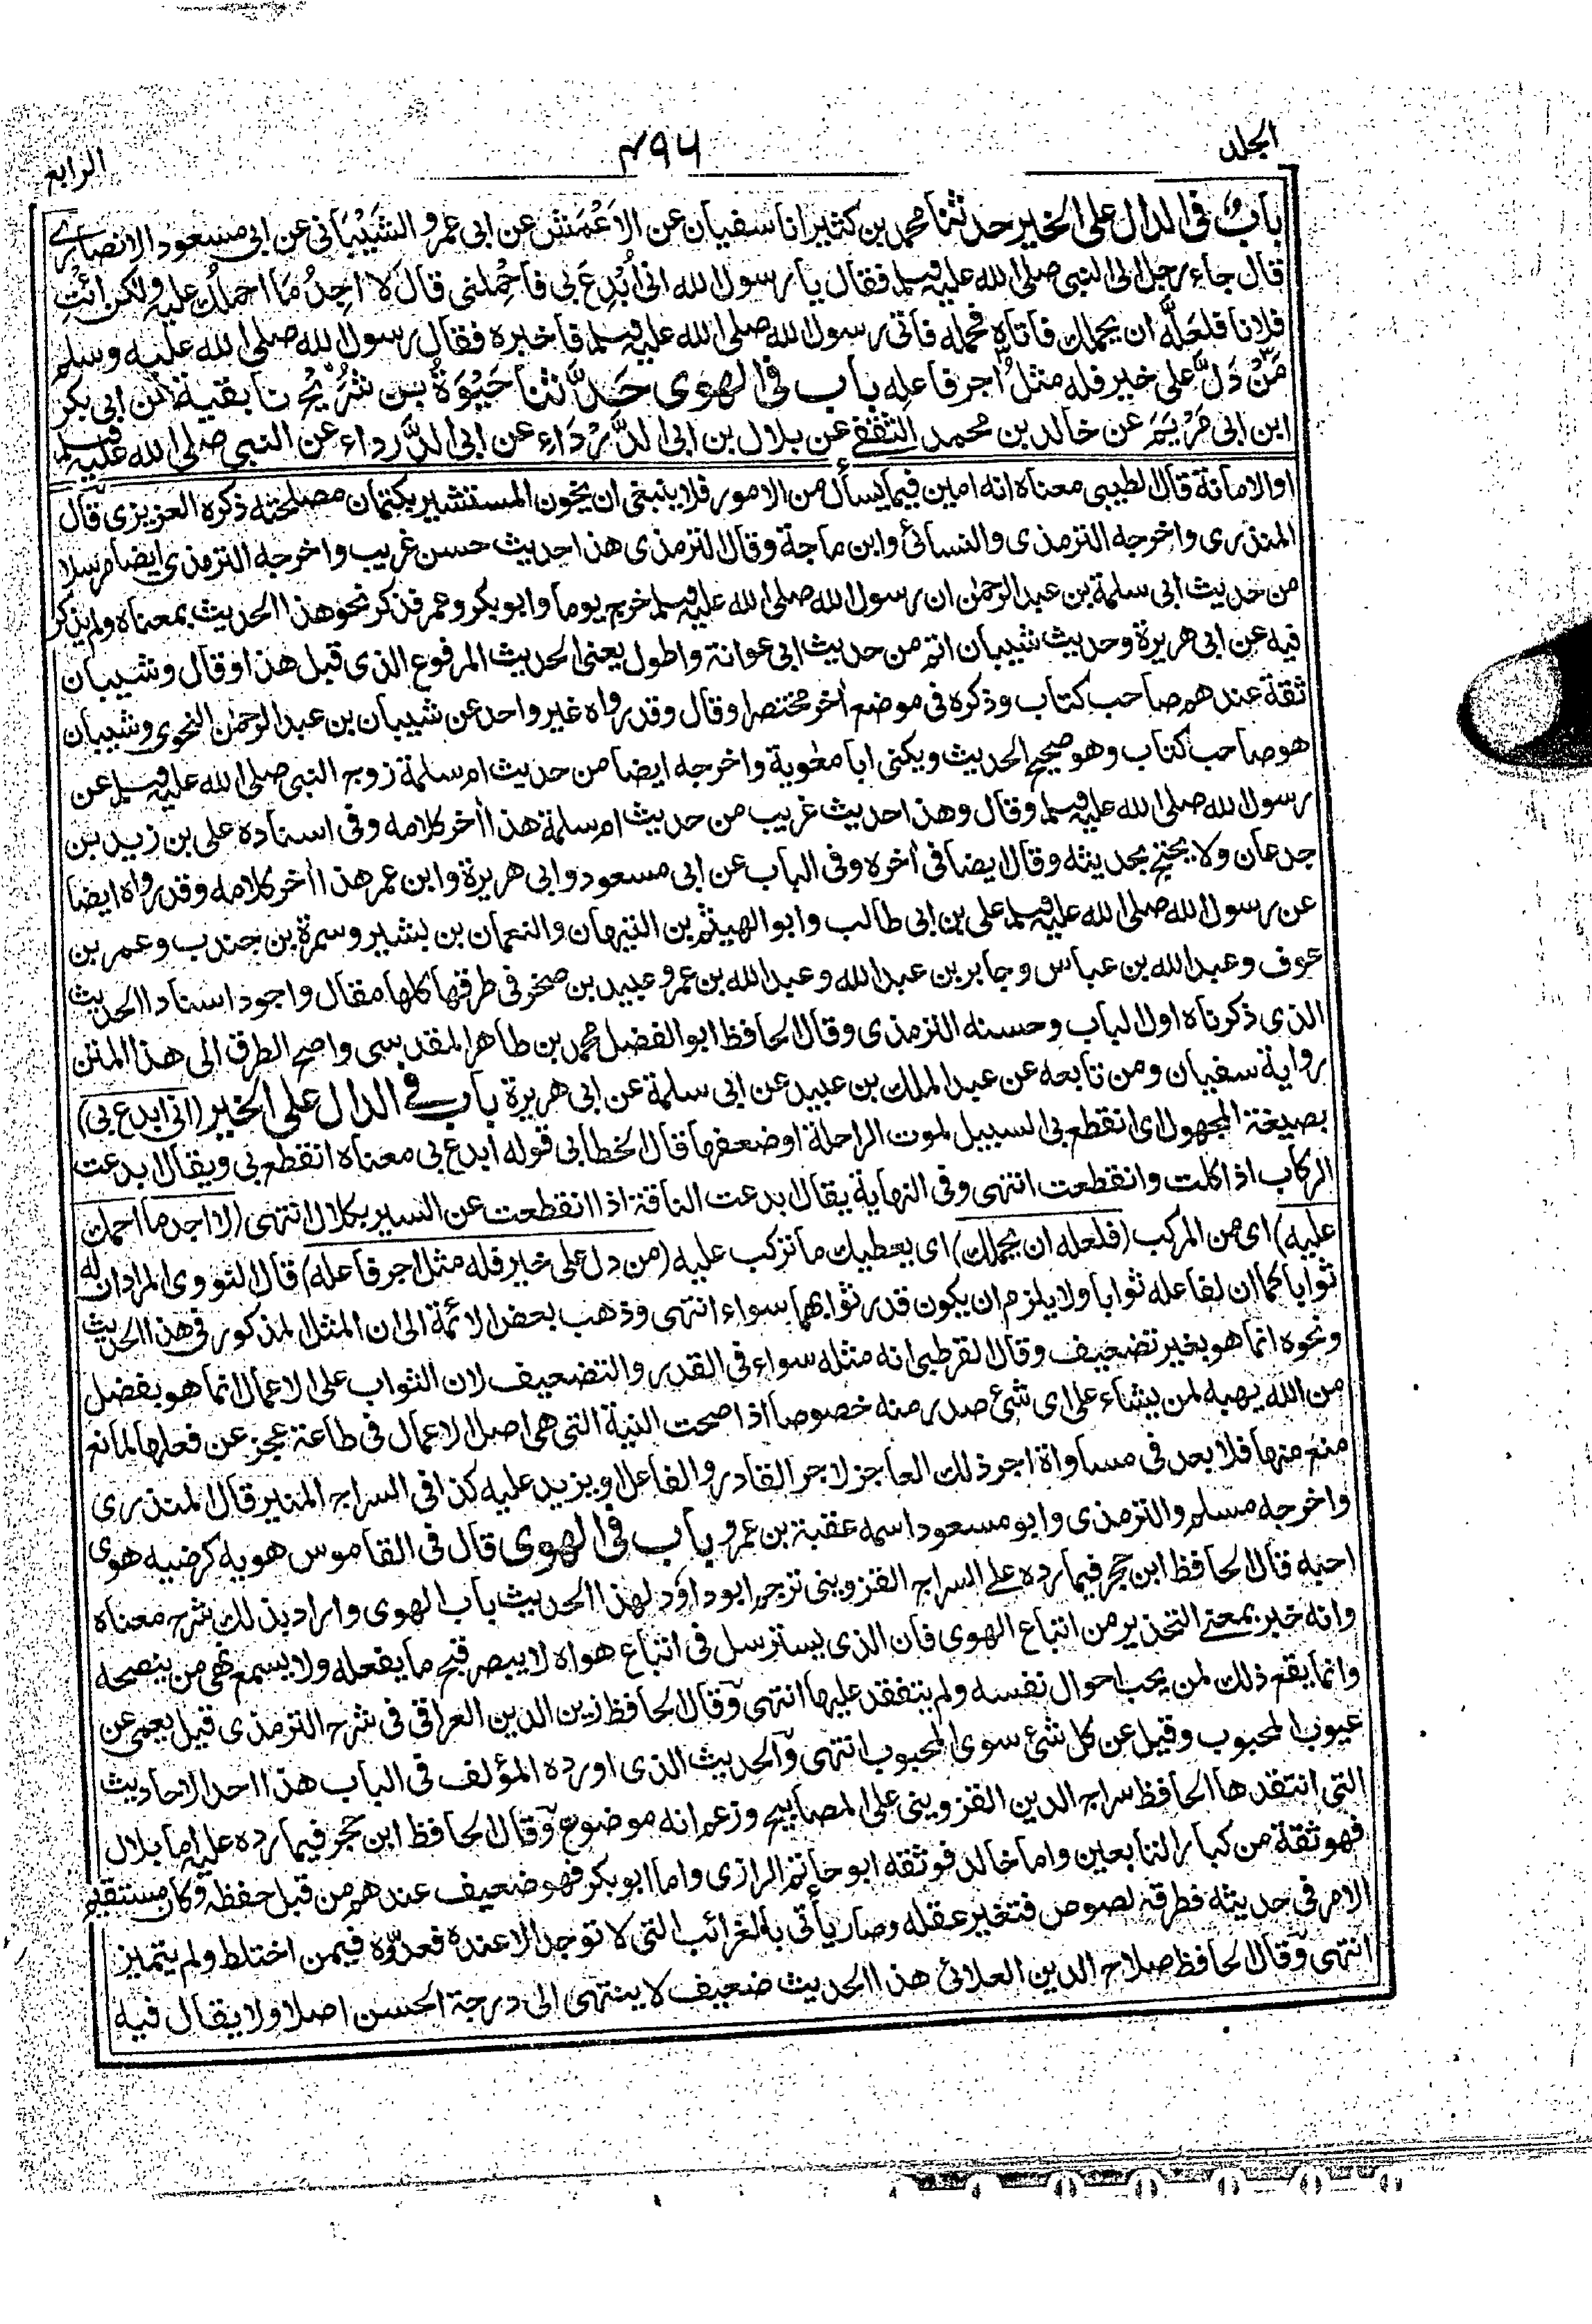 الجلد ٤٩٦ الرابع
باب في الدال على الخير حدثنا محمد بن كثير انا سفيان عن الاَعْمَش عن ابى عمرو الشَيْبَانى عن ابى مسعود الانصارى
قال جاء رجل الى النبى صلى الله عليه وسلم فقال يا رسول الله انى اُبْدِعَ بى فاحْمِلنى قال لا اجِدُ مَا احملُك عليه ولكن ائْتِ
فلانا فلعَلَّه ان يحملك فاتاه فحمله فاتى رسول الله صلى الله عليه وسلم فاخبره فقال رسول الله صلى الله عليه وسلم
مَنْ دَلَّ على خير فله مثلُ اجر فاعله باب فى الهوى حَدَّثنا حَيْوَةُ بن شُرَيْح نا بقية عن ابى بكر
ابن ابى مَرْيَمَ عن خالد بن محمد الثقفى عن بلال بن ابى الدَّرْدَاء عن ابى الدَّرداء عن النبى صلى الله عليه وسلم
او الامانة قال الطيبى معناه انه امين فيما يسأل من الامور فلا ينبغى ان يخون المستشير بكتمان مصلحته ذكره العزيزى قال
المنذرى واخرجه الترمذى والنسائى وابن ماجة وقال الترمذى هذا حديث حسن غريب واخرجه الترمذى ايضا مرسلا
من حديث ابى سلمة بن عبد الرحمٰن ان رسول الله صلى الله عليه وسلم خرج يوما وابو بكر وعمر فذكر نحو هذا الحديث بمعناه ولم يذكر
فيه عن ابى هريرة وحديث شيبان اتم من حديث ابى عوانة واطول يعنى الحديث المرفوع الذى قبل هذا وقال وشيبان
ثقة عندهم صاحب كتاب وذكره فى موضع اٰخر مختصرا وقال وقد رواه غير واحد عن شيبان بن عبد الرحمٰن النحوى وشيبان
هو صاحب كتاب وهو صحيح الحديث ويكنى ابا معٰوية واخرجه ايضا من حديث ام سلمة زوج النبى صلى الله عليه وسلم عن
رسول الله صلى الله عليه وسلم وقال وهذا حديث غريب من حديث ام سلمة هذا اٰخر كلامه وفى اسناده على بن زيد بن
جدعان ولا يحتج بحديثه وقال ايضا فى اٰخره وفى الباب عن ابى مسعود وابى هريرة وابن عمر هذا اٰخر كلامه وقد رواه ايضا
عن رسول الله صلى الله عليه وسلم على بن ابى طالب وابو الهيثم بن التيهان والنعمان بن بشير وسمرة بن جندب وعمر بن
عوف وعبد الله بن عباس وجابر بن عبد الله وعبد الله بن عمر وعبيد بن صخر فى طرقها كلها مقال واجود اسناد الحديث
الذى ذكرناه اول الباب وحسنه الترمذى وقال الحافظ ابو الفضل محمد بن طاهر المقدسى واصح الطرق الى هذا المتن
رواية سفيان ومن تابعه عن عبد الملك بن عبيد عن ابى سلمة عن ابى هريرة باب فى الدال على الخير (انى ابدع بى)
بصيغة المجهول اى انقطع بى السبيل لموت الراحلة او ضعفها قال الخطابى قوله ابدع بى معناه انقطع بى ويقال ابدعت
الركاب اذا كلت وانقطعت انتهى وفى النهاية يقال ابدعت الناقة اذا انقطعت عن السير بكلال انتهى (لا اجد ما احملك
عليه) اى من المركب (فلعله ان يحملك) اى يعطيك ما تركب عليه (من دل على خير فله مثل اجر فاعله) قال النووى المراد ان له
ثوابا كما ان لفاعله ثوابا ولا يلزم ان يكون قدر ثوابهما سواء انتهى وذهب بعض الائمة الى ان المثل المذكور فى هذا الحديث
ونحوه انما هو بغير تضعيف وقال القرطبى انه مثله سواء فى القدر والتضعيف لان الثواب على الاعمال انما هو بفضل
من الله يهبه لمن يشاء على اى شئ صدر منه خصوصا اذا صحت النية التى هى اصل الاعمال فى طاعة عجز عن فعلها لمانع
منع منها فلا بعد فى مساواة اجر ذلك العاجز لاجر القادر والفاعل او يزيد عليه كذا فى السراج المنير قال المنذرى
واخرجه مسلم والترمذى وابو مسعود اسمه عقبة بن عمرو باب فى الهوى قال فى القاموس هويه كرضيه هوى
احبه قال الحافظ ابن حجر فيما رده على السراج القزوينى ترجم ابو داؤد لهذا الحديث باب الهوى واراد بذلك شرح معناه
وانه خبر بمعنى التحذير من اتباع الهوى فان الذى يسترسل فى اتباع هواه لا يبصر قبح ما يفعله ولا يسمع نهى من ينصحه
وانما يقع ذلك لمن يحب احوال نفسه ولم يتفقد عليها انتهى وقال الحافظ زين الدين العراقى فى شرح الترمذى قيل يعمى عن
عيوب المحبوب وقيل عن كل شئ سوى المحبوب انتهى والحديث الذى اورده المؤلف فى الباب هذا احد الاحاديث
التى انتقدها الحافظ سراج الدين القزوينى على المصابيح وزعم انه موضوع وقال الحافظ ابن حجر فيما رده عليه اما بلال
فهو ثقة من كبار التابعين واما خالد فوثقه ابو حاتم الرازى واما ابو بكر فهو ضعيف عندهم من قبل حفظه وكان مستقيم
الامر فى حديثه فطرقه لصوص فتغير عقله وصار يأتى بالغرائب التى لا توجد الا عنده فعدّوه فيمن اختلط ولم يتميز
انتهى وقال الحافظ صلاح الدين العلائى هذا الحديث ضعيف لا ينتهى الى درجة الحسن اصلا ولا يقال فيه